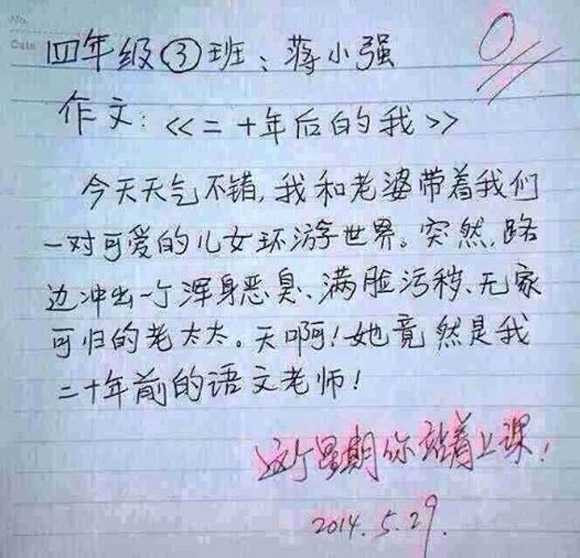 No.
Date
四年级③班：蒋小强
0
作文：《二十年后的我》
今天天气不错,我和老婆带着我们
一对可爱的儿女环游世界。突然,路
边冲出一个浑身恶臭、满脸污秽、无家
可归的老太太。天啊!她竟然是我
二十年前的语文老师!
这个星期你站着上课!
2014.5.29.